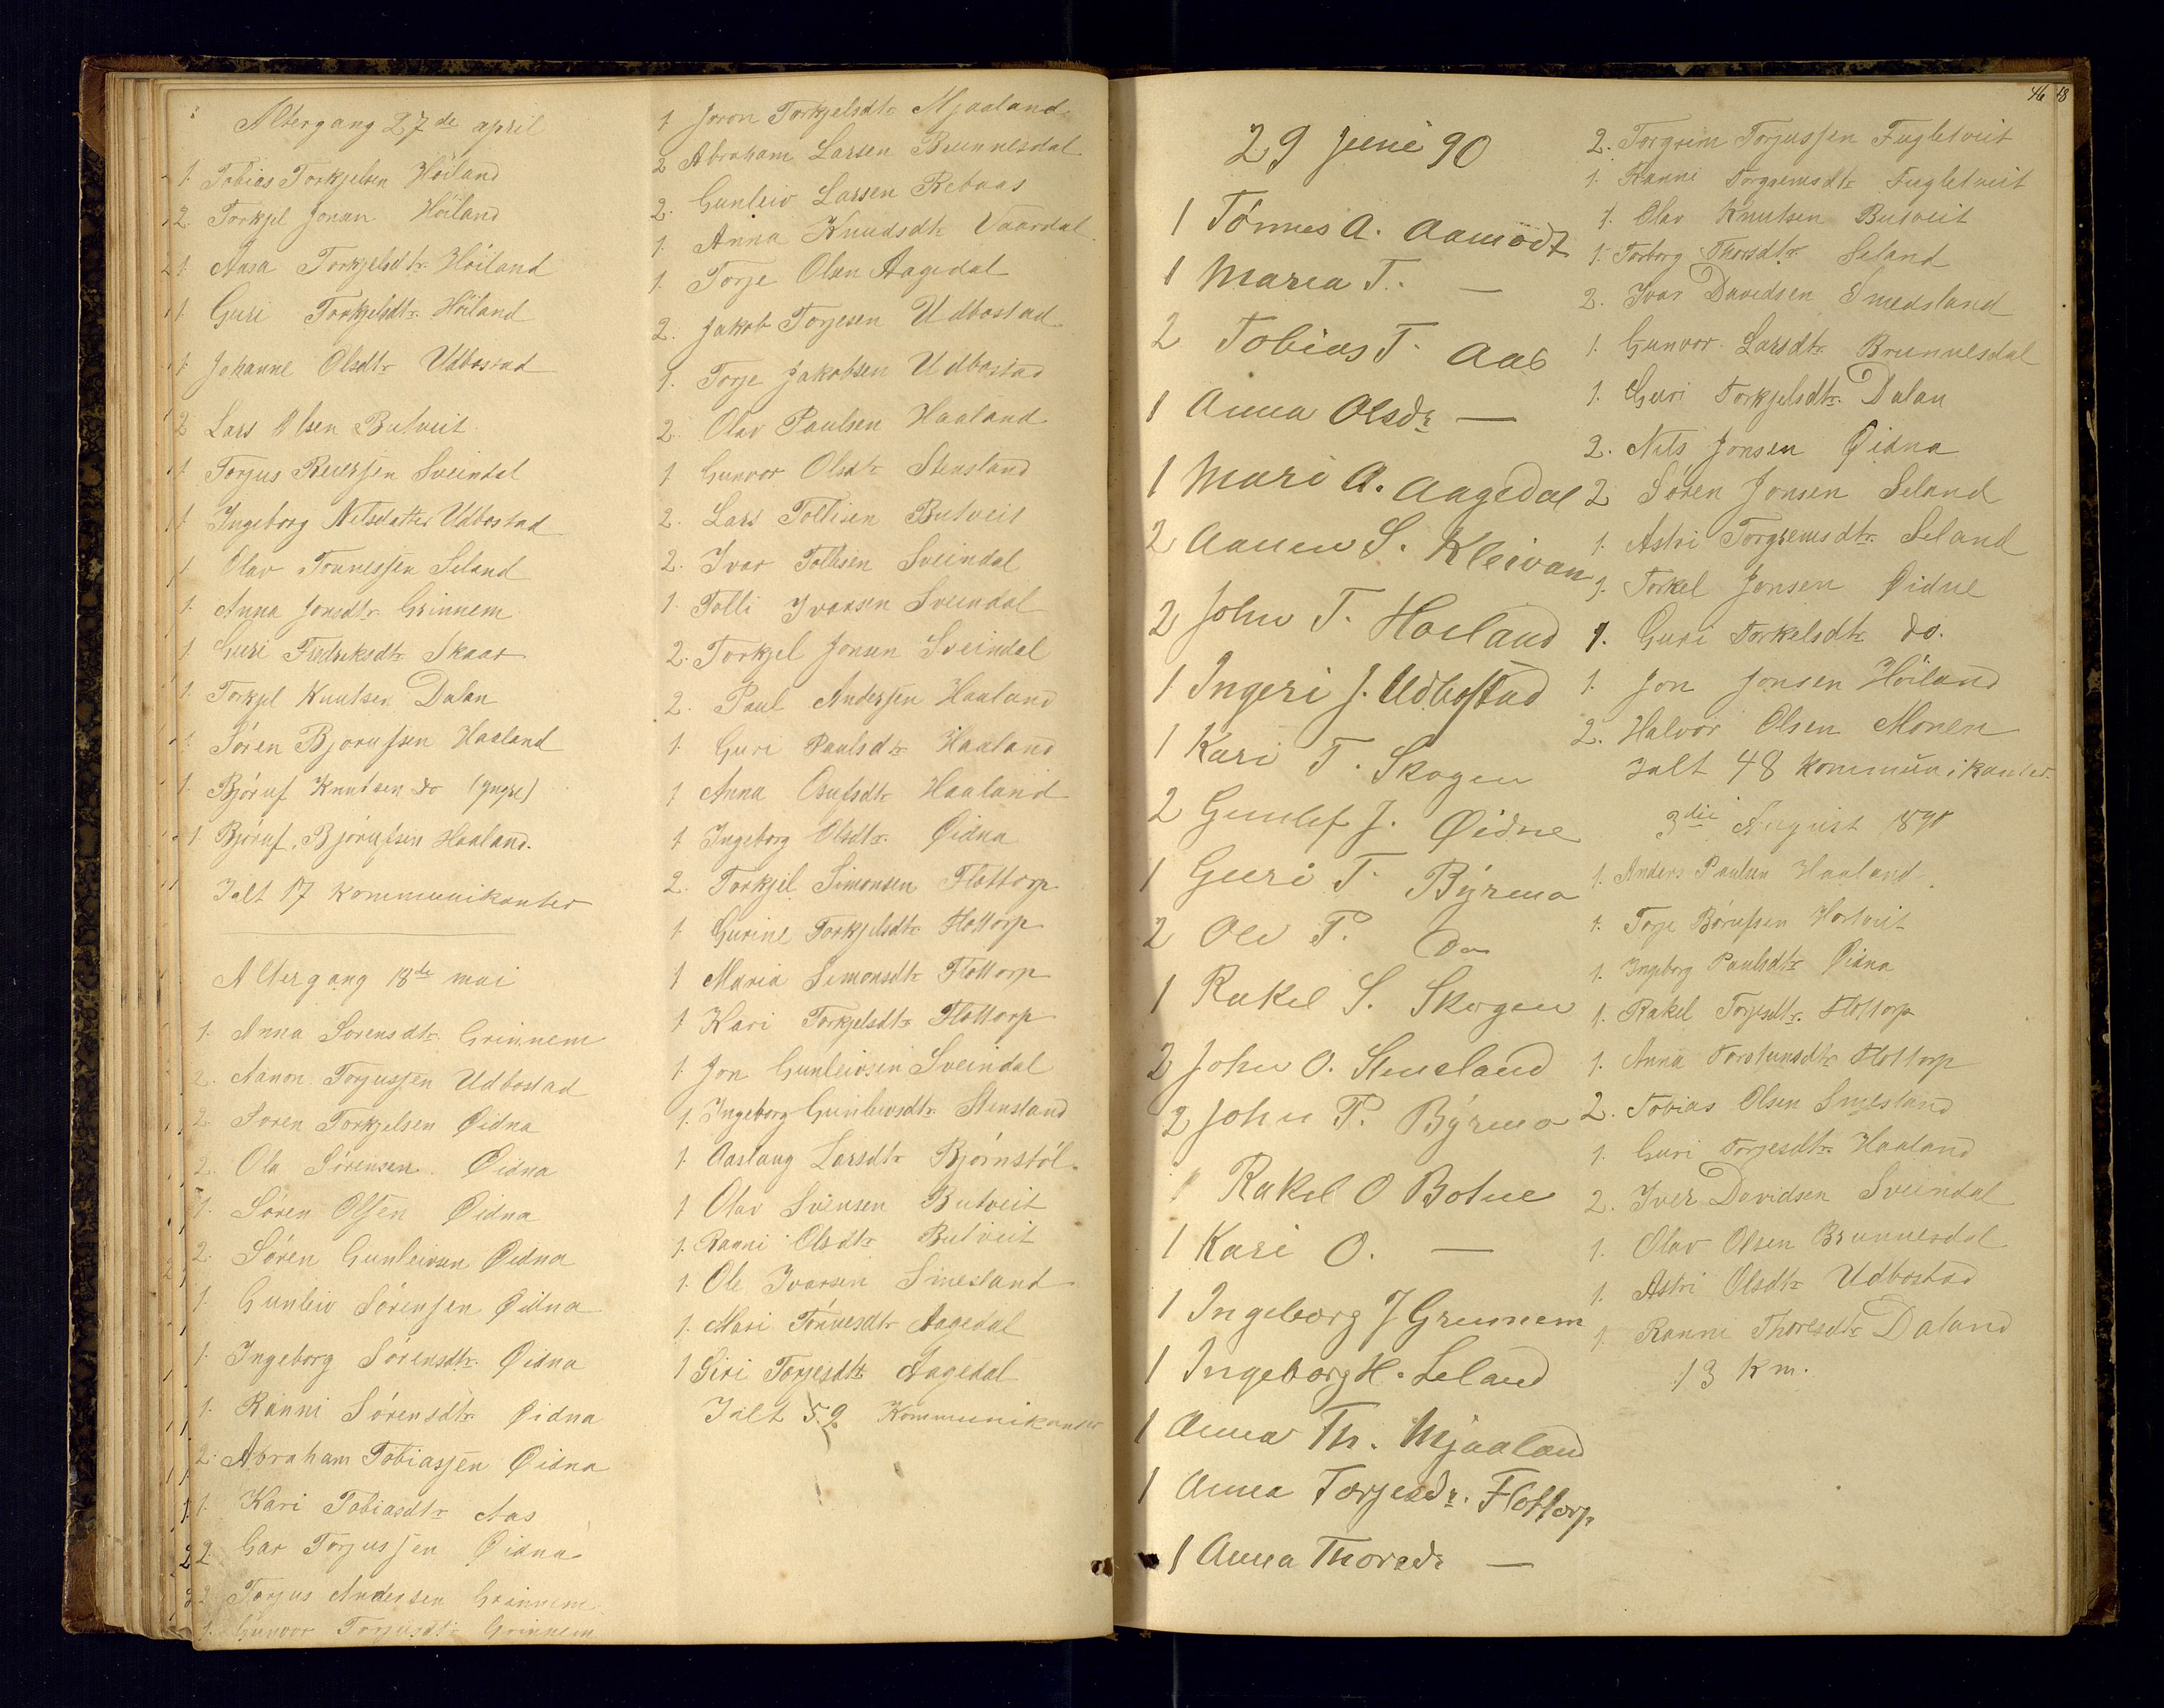 Altergang 27de april
1. Tobias Torkjelsen Höiland
2. Torkjel Jonsen Höiland
1. Aasa Torkjelsdtr. Höiland
1. Guri Torkjelsdtr. Höiland
1. Johanne Olsdtr Udbostad
2 Lars Olsen Butveit
1. Torjus Reiersen Sveindal
1. Ingeborg Nilsdatter Udbostad
1 Olav Tönnessen Seland
1. Anna Jonsdtr. Grinnem
1 Guri Fredriksdtr Skaar
1 Torkjel Knutsen Dalan
1 Sören Bjorufsen Haaland
1. Björuf Knutsen do (yngre)
1. Björuf. Björufsen Haaland.
Ialt 17 kommunikanter
Altergang 18de mai
1. Anna Sorensdtr. Grinnem
2. Aanon Torjussen Udbostad
2. Soren Torkjelsen Øidna
2. Ola Sörensen. Øidna
1. Sören Olsen Øidna
2. Sören Gunleivsen Øidna
1. Gunleiv Sörensen Øidna
1. Ingeborg Sörensdtr. Øidna
1. Ranni Sörensdtr. Øidna
2. Abraham Tobiassen Øidna
1. Kari Tobiasdtr Aas
2. Gar Torjussen Øidna
2. Torjus Andersen Grinnem
1. Gunvor Torjusdtr Grinnem
1. Joron Torkjelsdtr Mjaaland
2 Abraham Larsen Brunnesdal
2. Gunleiv Larsen Rebaas
1. Anna Knudsdtr Vaardal
1. Torje Olsen Aagedal
2. Jakob Torjesen Udbostad
1. Torje Jakobsen Udbostad
2. Olav Paulsen Haaland
1 Gunvor Olsdtr Stensland
2. Lars Tollisen Butveit
2. Ivar Tollisen Sveindal
1. Tolli Ivarsen Sveindal
2. Torkjel Jonsen Sveindal
2. Paul Andersen Haaland
1. Guri Paulsdtr Haaland
1 Anna Osufsdtr Haaland
1 Ingeborg Olsdtr. Øidna
2. Torkjel Simonsen Flottorp
1 Gurine Torkjelsdtr Flottorp
1 Maria Simonsdtr Flottorp
1 Kari Torkjelsdtr Flottorp
1. Jon Gunleivsen Sveindal
1. Ingeborg Gunleivsdtr. Stensland
1. Aaslaug Larsdtr Björnstöl.
1 Olav Svensen Butveit
1. Ranni Olsdtr Butveit
1. Ole Ivarsen Smesland
1. Mari Tönnesdtr Aagedal
1 Siri Torjesdtr Aagedal
Ialt 52 Kommunikanter
46 48
29 juni 90
1 Tönnes A. Aamodt
1 Maria T. —
2 Tobias T. Aas
1 Anna Olsdr —
1 Mari A. Aagedal
2 Aanen S. Kleivan
2 John T. Hoiland
1 Ingeri J. Udbostad
1 Kari T. Skogen
2 Gunlef J. Øidne
1 Guri T. Byrmo
2 Ole P. Do
1 Rakel S. Skogen
2 John O. Stensland
2 John P. Byrmo
1 Rakel O Botne
1 Kari O. —
1 Ingeborg J Grunnem
1 Ingeborg H. Seland
1 Anna Th. Mjaaland
1 Anna Torjesdr. Flottorp
1 Anna Thorsdr —
2. Torgrim Torjussen Fugletveit
1. Ranni Torgremsdtr Fugletveit
1. Olav Knutsen Butveit
1. Torborg Thorsdtr. Seland
2. Ivar Davidsen Smedsland
1. Gunvor Larsdtr. Brunnesdal
1. Guri Torkjelsdtr. Dalan
2. Nils Jonsen Øidna
2 Sören Jonsen Seland
1. Astri Torgremsdtr. Seland
1. Torkel Jonsen Øidne
1. Guri Torkelsdtr. do.
1. Jon Jonsen Höiland
2. Halvor Olsen Monen
Ialt 48 kommunikanter.
3die August 1890
1. Anders Paulsen Haaland
1. Torje Börufsen Hortveit
1. Ingeborg Paulsdtr Øidna
1. Rakel Torjesdtr. Flottorp
1. Anna Torstensdtr Flottorp
2. Tobias Olsen Smesland
1. Guri Torjesdtr. Haaland
2. Iver Davidsen Sveindal
1. Olav Olsen Brunnesdal
1. Astri Olsdtr Udbostad
1. Ranni Thoresdtr Daland
13 Km.